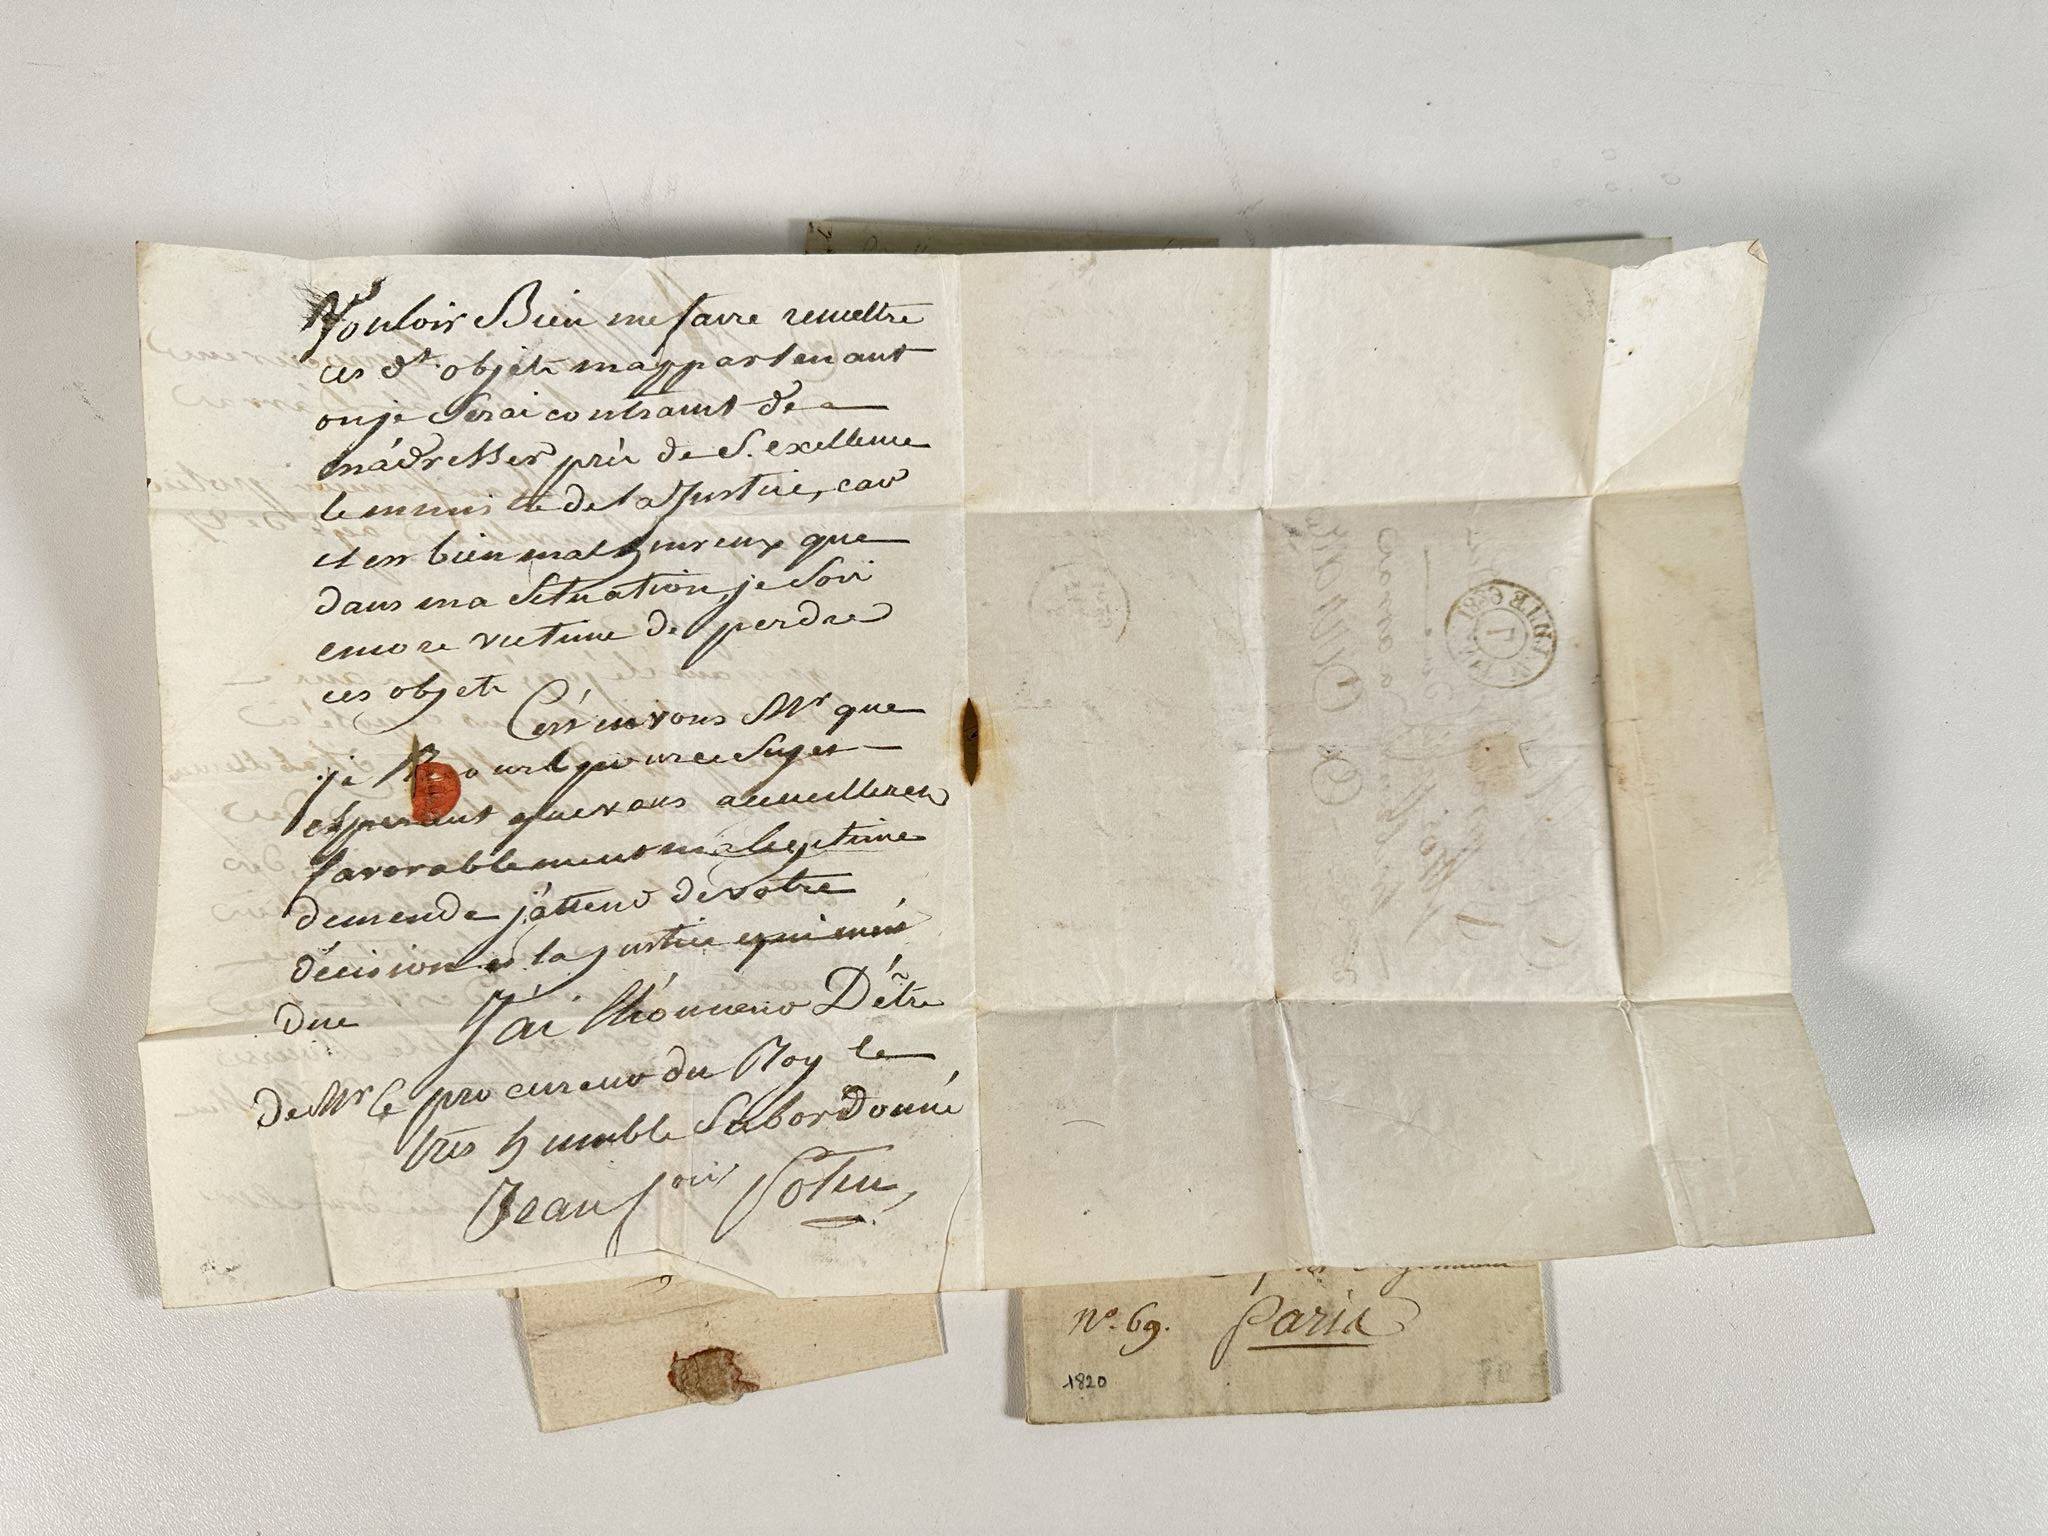 Vouloir Bien me faire remettre
ces dt. objets mappartenant
ou je Serai contraint de
m'adresser près de S. exellence
le ministre de la Justice, car
il est bien malhureux que
dans ma Situation, je Soi
encore victime de perdre
ces objets
C'est en vous Mr que
je pour ce Sujet
esperant que vous accueilleres
favorablement ma legitime
demende j'attend de votre
décision et la justice qui m'est
due J'ai lhonneur D'être
De Mr le procureur du Roy le
très humble Subordonné
Jean Soten
No. 69. Paris
1820